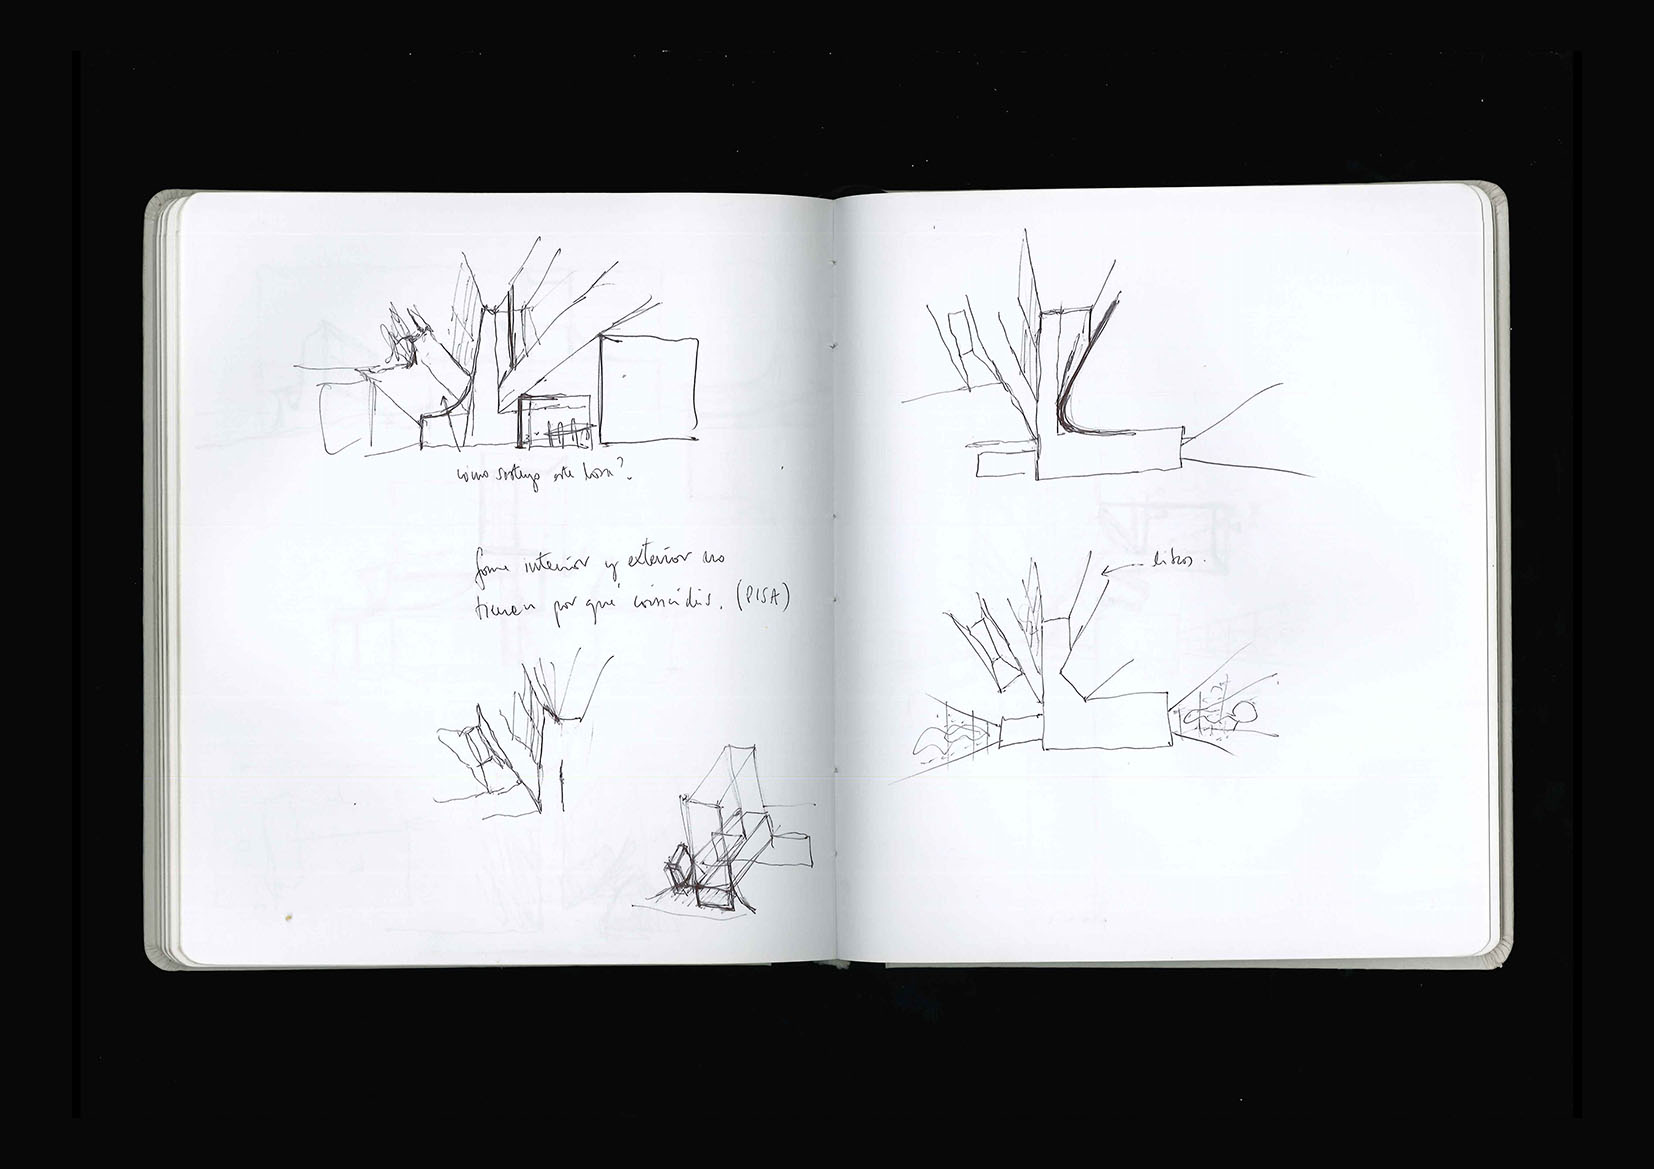 como sostengo esta losa?
forma interior y exterior no
tienen por qué coincidir. (PISA)
libros.